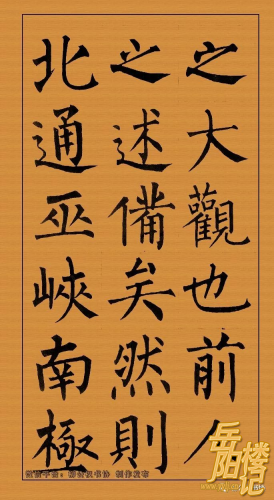 之大觀也前人
之述備矣然則
北通巫峽南極
岳阳楼记